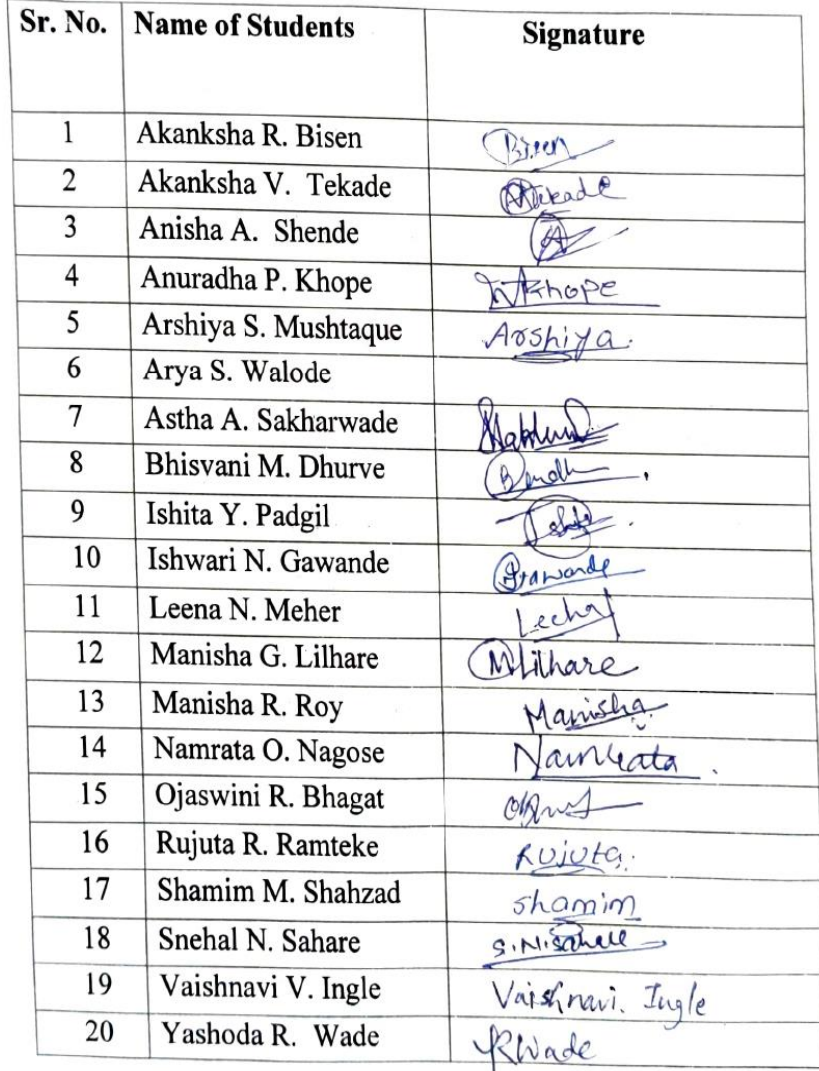 Sr. No. Name of Students Signature
1 Akanksha R. Bisen Bisen
2 Akanksha V. Tekade Tekade
3 Anisha A. Shende A
4 Anuradha P. Khope Khope
5 Arshiya S. Mushtaque Arshiya.
6 Arya S. Walode
7 Astha A. Sakharwade
8 Bhisvani M. Dhurve
9 Ishita Y. Padgil
10 Ishwari N. Gawande Gawande
11 Leena N. Meher
12 Manisha G. Lilhare MLilhare
13 Manisha R. Roy Manisha
14 Namrata O. Nagose Namrata.
15 Ojaswini R. Bhagat
16 Rujuta R. Ramteke Rujuta.
17 Shamim M. Shahzad Shamim
18 Snehal N. Sahare S.N.Sahare
19 Vaishnavi V. Ingle Vaishnavi. Ingle
20 Yashoda R. Wade YRWade